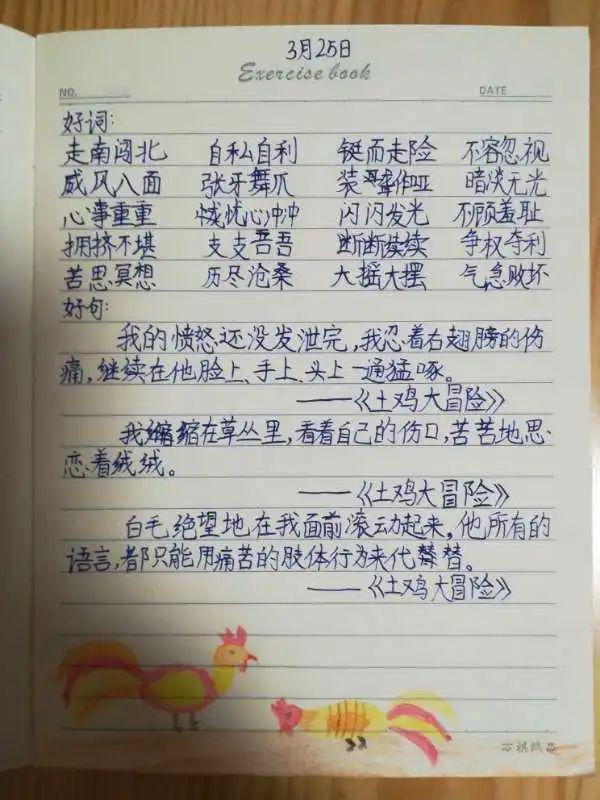 3月25日
Exercise book
NO.
DATE
好词:
走南闯北 自私自利 铤而走险 不容忽视
威风八面 张牙舞爪 装聋作哑 暗淡无光
心事重重 忧心忡忡 闪闪发光 不顾羞耻
拥挤不堪 支支吾吾 断断续续 争权夺利
苦思冥想 历尽沧桑 大摇大摆 气急败坏
好句:
我的愤怒还没发泄完,我忍着右翅膀的伤
痛,继续在他脸上、手上、头上一通猛啄。
——《土鸡大冒险》
我缩在草丛里,看着自己的伤口,苦苦地思
恋着绒绒。
——《土鸡大冒险》
白毛绝望地在我面前滚动起来,他所有的
语言,都只能用痛苦的肢体行为来代替。
——《土鸡大冒险》